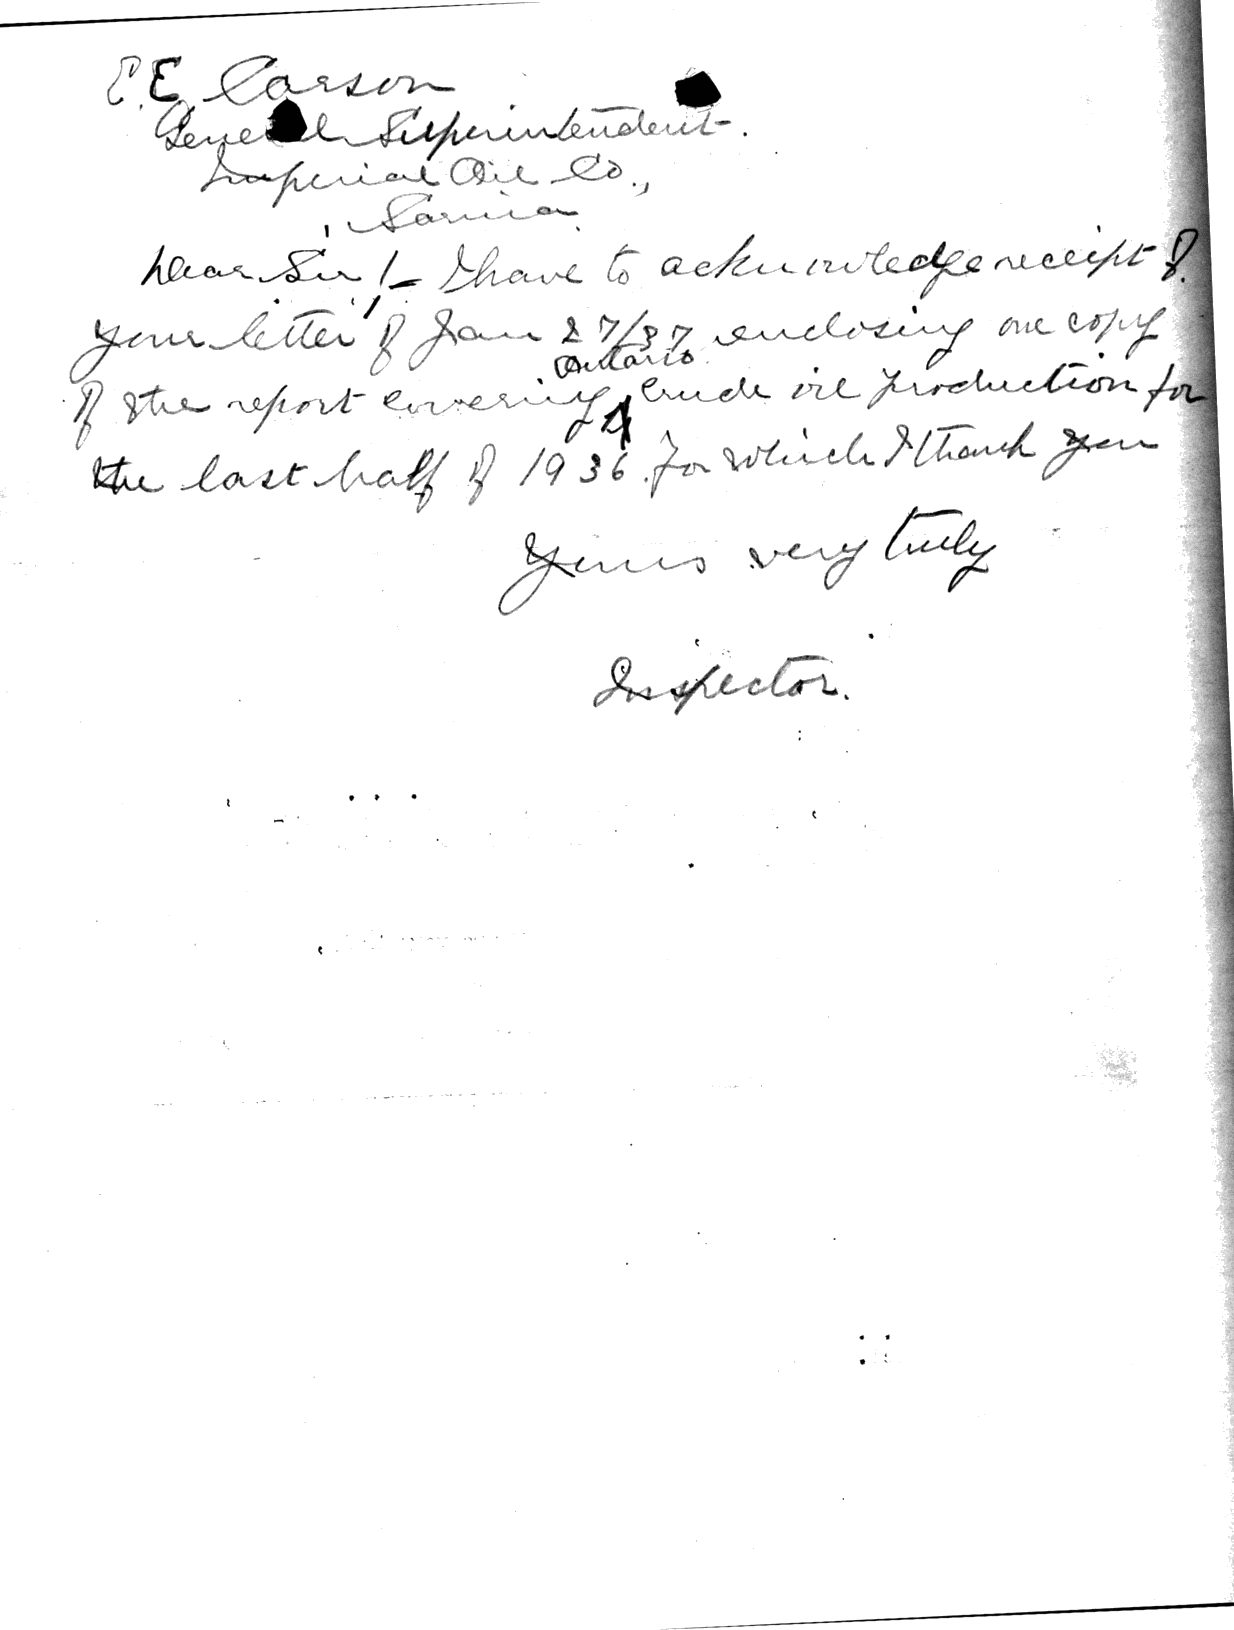 E.E. Carson
General Superintendent.
Imperial Oil Co.,
Sarnia
Dear Sir!- I have to acknowledge receipt of
your letter of Jan 27/37 enclosing one copy
Ontario
of the report covering crude oil production for
the last half of 1936 for which I thank you
Yours very truly
Inspector.